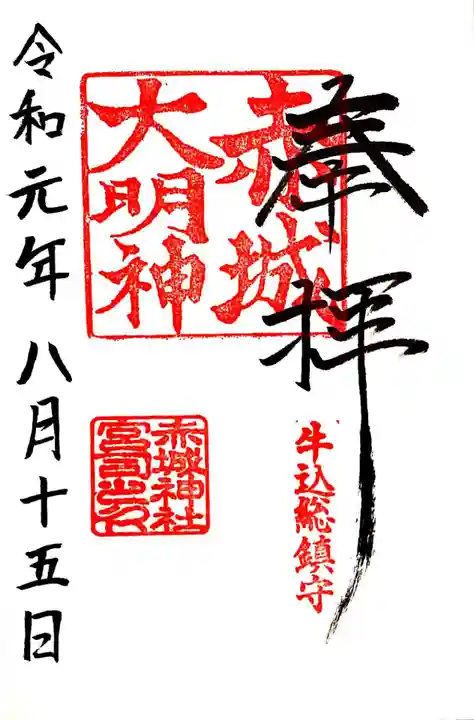 奉拝
赤城
大明神
牛込総鎮守
赤城神社
宮司之印
令和元年 八月十五日